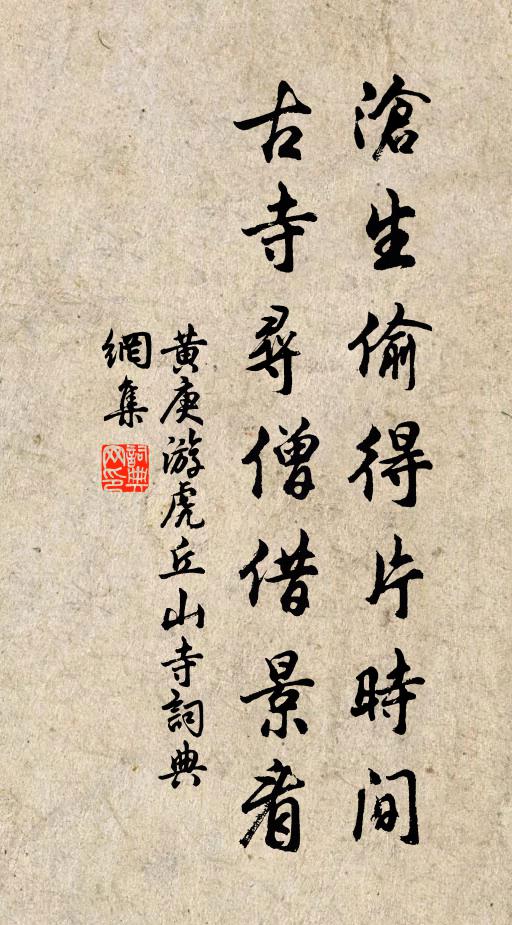 滄生偷得片時间
古寺尋僧借景看
黄庚游虎丘山寺詞典
網集
詞典
网印